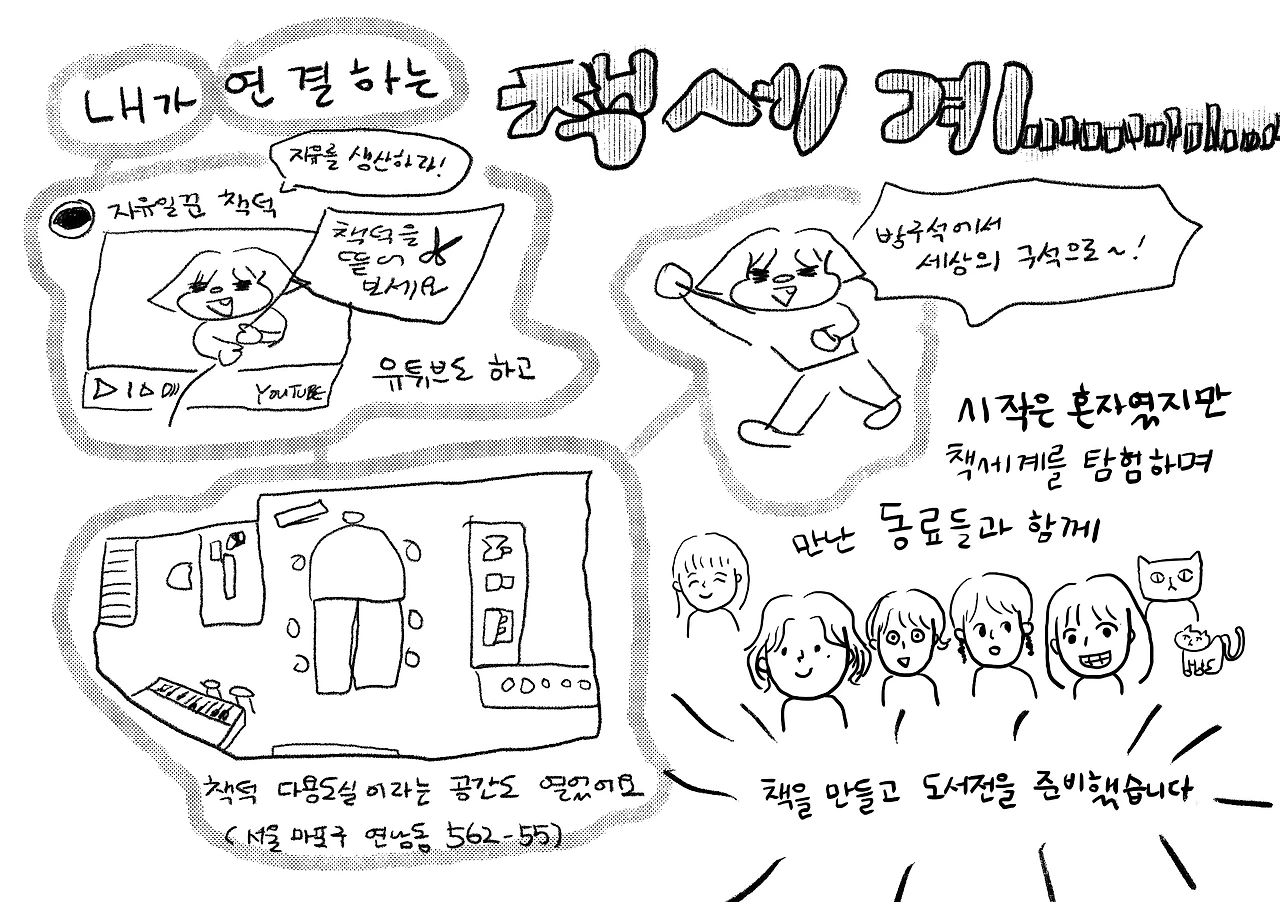 내가 연결하는 책세계
자유를 생산하라!
자유일꾼 책덕
책덕을
뜯어
보세요
YOUTUBE
유튜브도 하고
방구석에서
세상의 구석으로~!
시작은 혼자였지만
책세계를 탐험하며
만난 동료들과 함께
책덕 다용도실이라는 공간도 열었어요
(서울 마포구 연남동 562-55)
책을 만들고 도서전을 준비했습니다